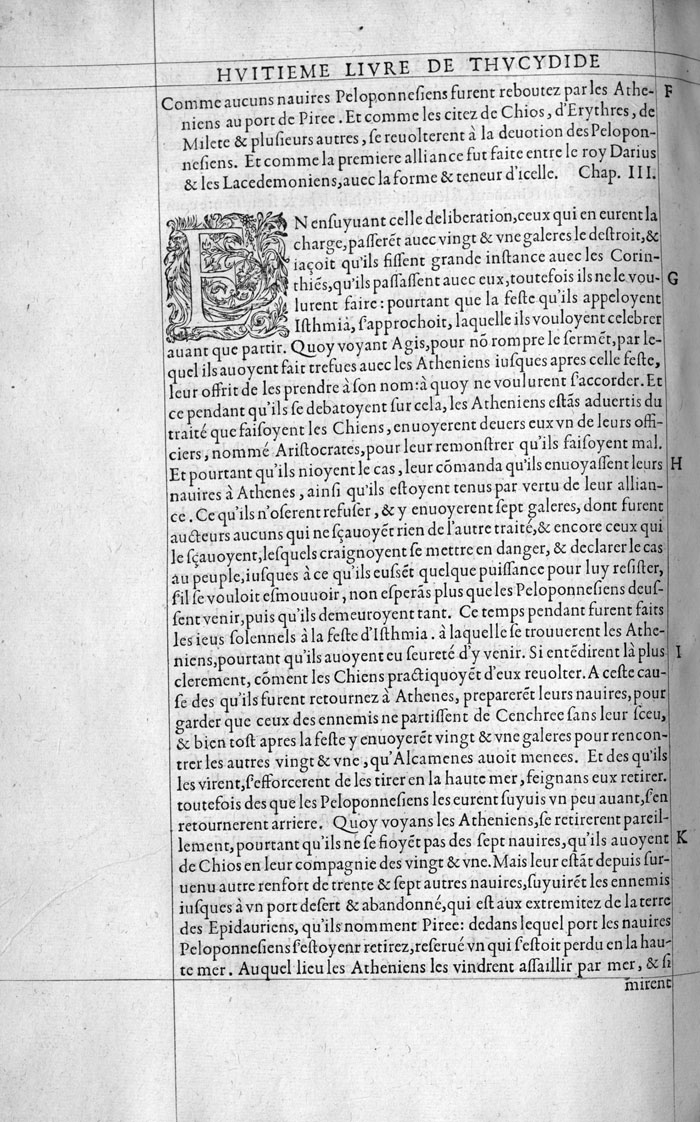 HVITIEME LIVRE DE THVCYDIDE
Comme aucuns nauires Peloponneſiens furent reboutez par les Athe- F
niens au port de Piree. Et comme les citez de Chios, d'Erythres, de
Milete & pluſieurs autres, ſe reuolterent à la deuotion des Pelopon-
neſiens. Et comme la premiere alliance fut faite entre le roy Darius
& les Lacedemoniens, auec la forme & teneur d'icelle. Chap. III.
EN enſuyuant celle deliberation, ceux qui en eurent la
charge, paſſerēt auec vingt & vne galeres le deſtroit, &
iaçoit qu'ils fiſſent grande inſtance auec les Corin-
thiēs, qu'ils paſſaſſent auec eux, toutefois ils ne le vou- G
lurent faire: pourtant que la feſte qu'ils appeloyent
Iſthmia, ſ'approchoit, laquelle ils vouloyent celebrer
auant que partir. Quoy voyant Agis, pour nō rompre le ſermēt, par le-
quel ils auoyent fait trefues auec les Atheniens iuſques apres celle feſte,
leur offrit de les prendre à ſon nom: à quoy ne voulurent ſ'accorder. Et
ce pendant qu'ils ſe debatoyent ſur cela, les Atheniens eſtās aduertis du
traité que faiſoyent les Chiens, enuoyerent deuers eux vn de leurs offi-
ciers, nommé Ariſtocrates, pour leur remonſtrer qu'ils faiſoyent mal.
Et pourtant qu'ils nioyent le cas, leur cōmanda qu'ils enuoyaſſent leurs H
nauires à Athenes, ainſi qu'ils eſtoyent tenus par vertu de leur allian-
ce. Ce qu'ils n'oſerent refuſer, & y enuoyerent ſept galeres, dont furent
aucteurs aucuns qui ne ſçauoyēt rien de l'autre traité, & encore ceux qui
le ſçauoyent, leſquels craignoyent ſe mettre en danger, & declarer le cas
au peuple, iuſques à ce qu'ils euſſēt quelque puiſſance pour luy reſiſter,
ſ'il ſe vouloit eſmouuoir, non eſperās plus que les Peloponneſiens deuſ-
ſent venir, puis qu'ils demeuroyent tant. Ce temps pendant furent faits
les ieus ſolennels à la feſte d'Iſthmia. à laquelle ſe trouuerent les Athe-
niens, pourtant qu'ils auoyent eu ſeureté d'y venir. Si entēdirent là plus I
clerement, cōment les Chiens practiquoyēt d'eux reuolter. A ceſte cau-
ſe des qu'ils furent retournez à Athenes, preparerēt leurs nauires, pour
garder que ceux des ennemis ne partiſſent de Cenchree ſans leur ſceu,
& bien toſt apres la feſte y enuoyerēt vingt & vne galeres pour rencon-
trer les autres vingt & vne, qu'Alcamenes auoit menees. Et des qu'ils
les virent, ſ'efforcerent de les tirer en la haute mer, feignans eux retirer.
toutefois des que les Peloponneſiens les eurent ſuyuis vn peu auant, ſ'en
retournerent arriere. Quoy voyans les Atheniens, ſe retirerent pareil-
lement, pourtant qu'ils ne ſe fioyēt pas des ſept nauires, qu'ils auoyent K
de Chios en leur compagnie des vingt & vne. Mais leur eſtāt depuis ſur-
uenu autre renfort de trente & ſept autres nauires, ſuyuirēt les ennemis
iuſques à vn port deſert & abandonné, qui eſt aux extremitez de la terre
des Epidauriens, qu'ils nomment Piree: dedans lequel port les nauires
Peloponneſiens ſ'eſtoyenr retirez, reſerué vn qui ſ'eſtoit perdu en la hau-
te mer. Auquel lieu les Atheniens les vindrent aſſaillir par mer, & ſi
m̄irent